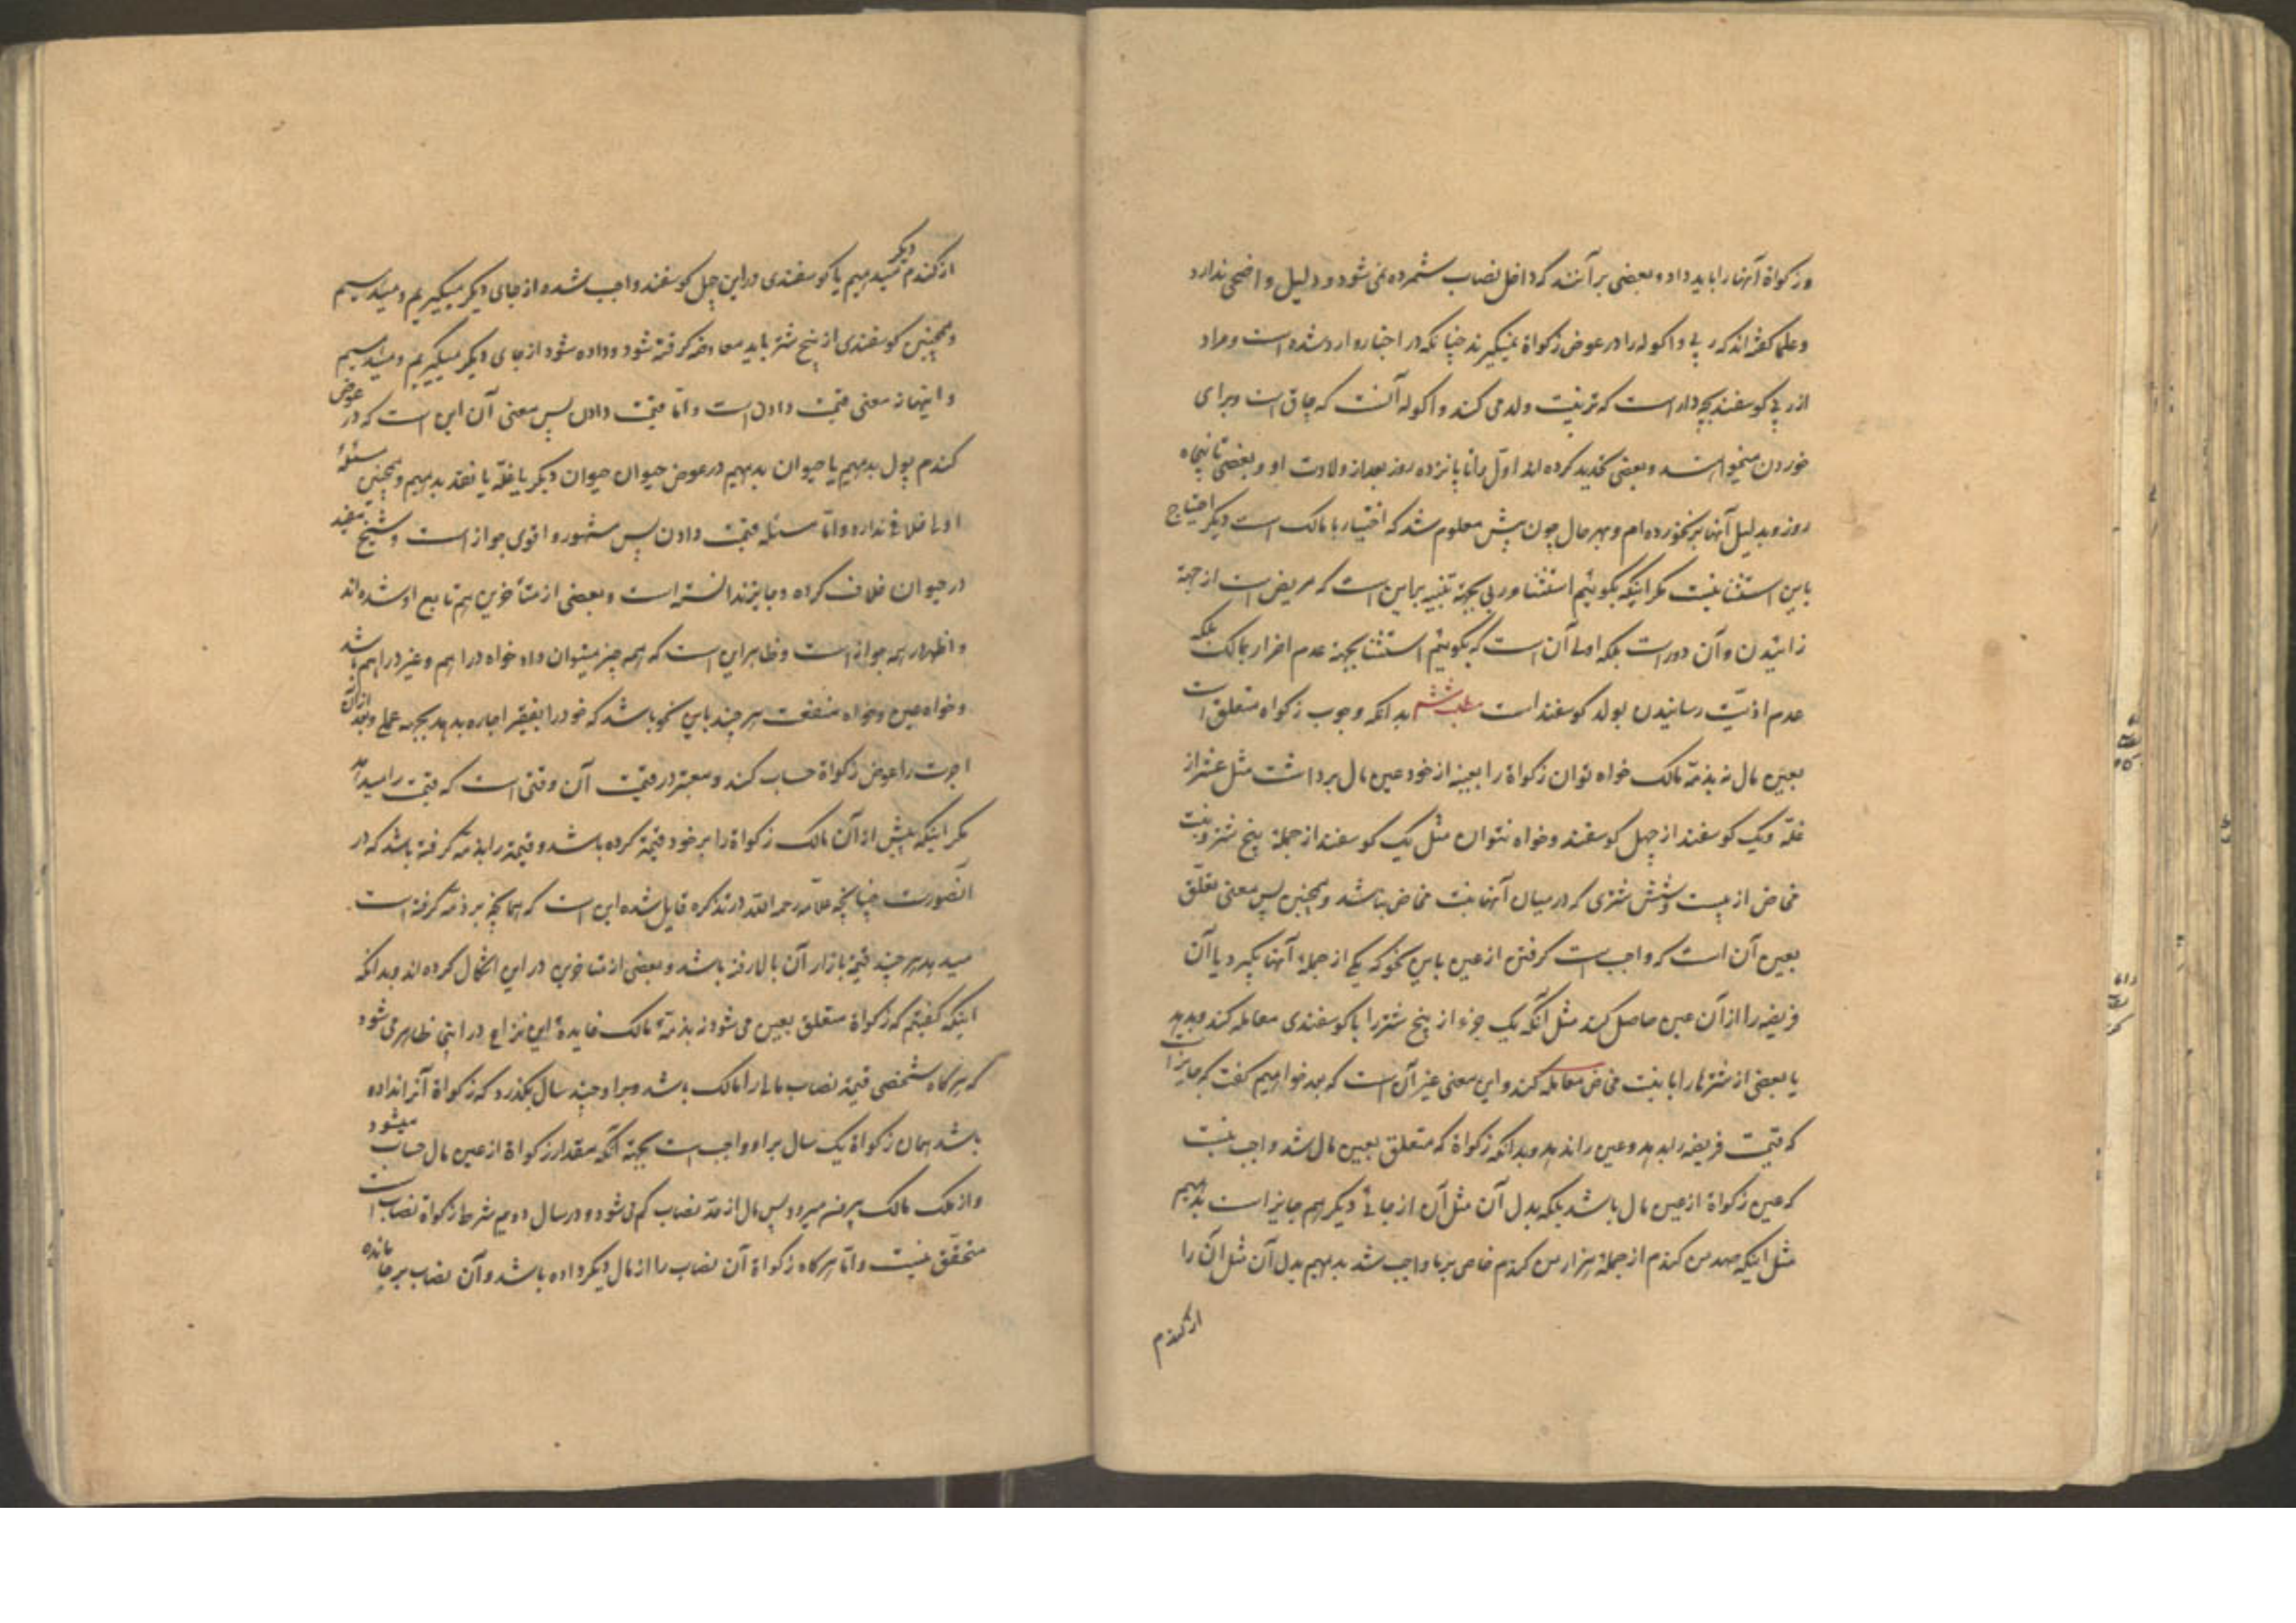 و زکواة آنها را باید داد و بعضی بر آنند که داخل نصاب شمرده نمی شود و دلیل واضحی ندارد
و علما گفته اند که ربی و اکوله را در عوض زکواة نمیگیرند چنانکه در اخبار وارد شده است و مراد
از ربی گوسفند بچه دار است که تربیت ولد می کند و اکوله آنست که چاق است و برای
خوردن میخواهند و بعضی تحدید کرده اند اول را تا پانزده روز بعد از ولادت او و بعضی تا پنجاه
روز و بدلیل آنها بر نخورده ام و بهر حال چون پیش معلوم شد که اختیار با مالک است دیگر احتیاج
باین استثنا نیست مگر اینکه بگوئیم استثناء ربی بجهة تنبیه براین است که مریض است از جهة
زائیدن و آن دور است بلکه اولی آن است که بگوئیم استثنا بجهة عدم اضرار بمالک بلکه
عدم اذیت رسانیدن بولد گوسفند است مطلب ششم بدانکه وجوب زکواة متعلق است
بعین مال نه بذمه مالک خواه توان زکواة را بعینه از خود عین مال برداشت مثل عشر از
غله و یک گوسفند از چهل گوسفند و خواه نتوان مثل یک گوسفند از جمله پنج شتر و بنت
مخاض از بیست و شش شتری که در میان آنها بنت مخاض نباشد و همچنین پس معنی تعلق
بعین آن است که واجب است گرفتن از عین باین نحو که یکی از جمله آنها بگیرد یا آن
فریضه را از آن عین حاصل کند مثل آنکه یک جزء از پنج شتر را با گوسفندی معامله کند و بدهد
یا بعضی از شترها را با بنت مخاض معامله کند و این معنی غیر آن است که بعد خواهیم گفت که جایز است
که قیمت فریضه را بدهد و عین را ندهد و بدانکه زکواة که متعلق بعین مال شد واجب نیست
که عین زکواة از عین مال باشد بلکه بدل آن مثل آن از جائی دیگر هم جایز است بدهیم
مثل اینکه صد من گندم از جمله هزار من گندم خاص بر ما واجب شد بدهیم بدل آن مثل آن را
از گندم
از گندم دیگر میدهیم یا گوسفندی در این چهل گوسفند واجب شده و از جای دیگر میگیریم و میدهیم
و همچنین گوسفندی از پنج شتر باید معاوضه گرفته شود و داده شود از جای دیگر میگیریم و میدهیم
و اینها نه معنی قیمت دادن است و اما قیمت دادن پس معنی آن این است که در عوض
گندم پول بدهیم یا حیوان بدهیم در عوض حیوان حیوان دیگر یا غله یا نقد بدهیم و همچنین مسئله
اولی خلافی ندارد و اما مسئله قیمت دادن پس مشهور و اقوی جواز است و شیخ مفید
در حیوان خلاف کرده و جایز ندانسته است و بعضی از متأخرین هم تابع او شده اند
و اظهر همه جواز است و ظاهر این است که همه چیز میتوان داد خواه دراهم و غیر دراهم باشد
و خواه عین و خواه منفعت هر چند باین نحو باشد که خود را بفقیر اجاره بدهد بجهة عملی و بعد از آن
اجرت را عوض زکواة حساب کند و معتبر در قیمت آن وقتی است که قیمت را میدهد
مگر اینکه پیش از آن مالک زکواة را بر خود قیمة کرده باشد و قیمة را بذمه گرفته باشد که در
آنصورت چنانچه علامه رحمه الله در تذکره قایل شده این است که همانچه بر ذمه گرفته است
میدهد هر چند قیمة بازار آن بالا رفته باشد و بعضی از متاخرین در این اشکال کرده اند و بدانکه
اینکه گفتیم که زکواة متعلق بعین می شود نه بذمه مالک فایدهٔ این نزاع در اینجا ظاهر می شود
که هر گاه شخصی قیمة نصاب مالی را مالک باشد و بر او چند سال بگذرد که زکواة آنرا نداده
باشد همان زکواة یک سال بر او واجب است بجهة آنکه مقدار زکواة از عین مال حساب میشود
و از ملک مالک بیرون میرود پس مال از حد نصاب کم می شود و در سال دویم شرط زکواة نصاب است
متحقق نیست و اما هر گاه زکواة آن نصاب را از مال دیگر داده باشد و آن نصاب بر جا مانده